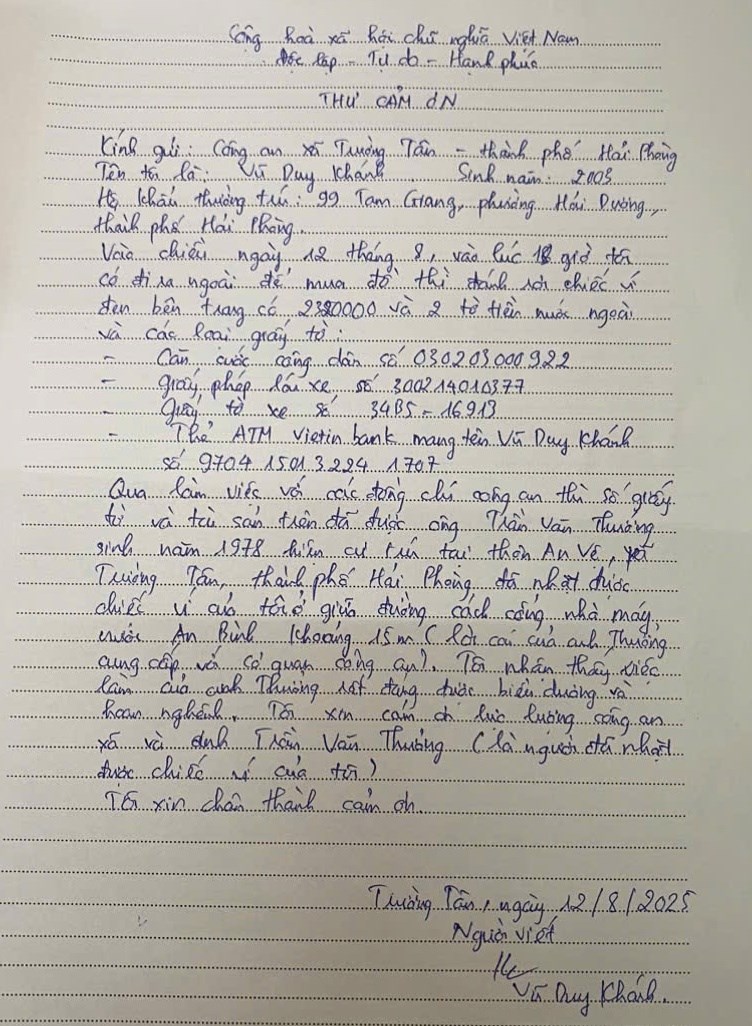 Cộng hoà xã hội chủ nghĩa Việt Nam
Độc lập - Tự do - Hạnh phúc
THƯ CẢM ƠN
Kính gửi: Công an xã Trường Tân - thành phố Hải Phòng
Tên tôi là: Vũ Duy Khánh Sinh năm: 2003
Hộ khẩu thường trú: 99 Tam Giang, phường Hải Dương,
thành phố Hải Phòng.
Vào chiều ngày 12 tháng 8, vào lúc 18 giờ tôi
có đi ra ngoài để mua đồ thì đánh rơi chiếc ví
đen bên trong có 2320000 và 2 tờ tiền nước ngoài
và các loại giấy tờ:
- Căn cước công dân số 030203000922
- Giấy phép lái xe số 300214010377
- Giấy tờ xe số 34B5-16913
- Thẻ ATM Vietinbank mang tên Vũ Duy Khánh
số 9704 1501 3224 1707
Qua làm việc với các đồng chí công an thì số giấy
tờ và tài sản trên đã được ông Trần Văn Thưởng
sinh năm 1978 hiện cư trú tại thôn An Vệ, xã
Trường Tân, thành phố Hải Phòng đã nhặt được
chiếc ví của tôi ở giữa đường cách cổng nhà máy
nước An Bình khoảng 15m (lời cai của anh Thưởng
cung cấp với cơ quan công an). Tôi nhận thấy việc
làm của anh Thưởng rất đáng được biểu dương và
hoan nghênh. Tôi xin cảm ơn lực lượng công an
xã và anh Trần Văn Thưởng (là người đã nhặt
được chiếc ví của tôi)
Tôi xin chân thành cảm ơn.
Trường Tân, ngày 12/8/2025
Người viết
Vũ Duy Khánh.